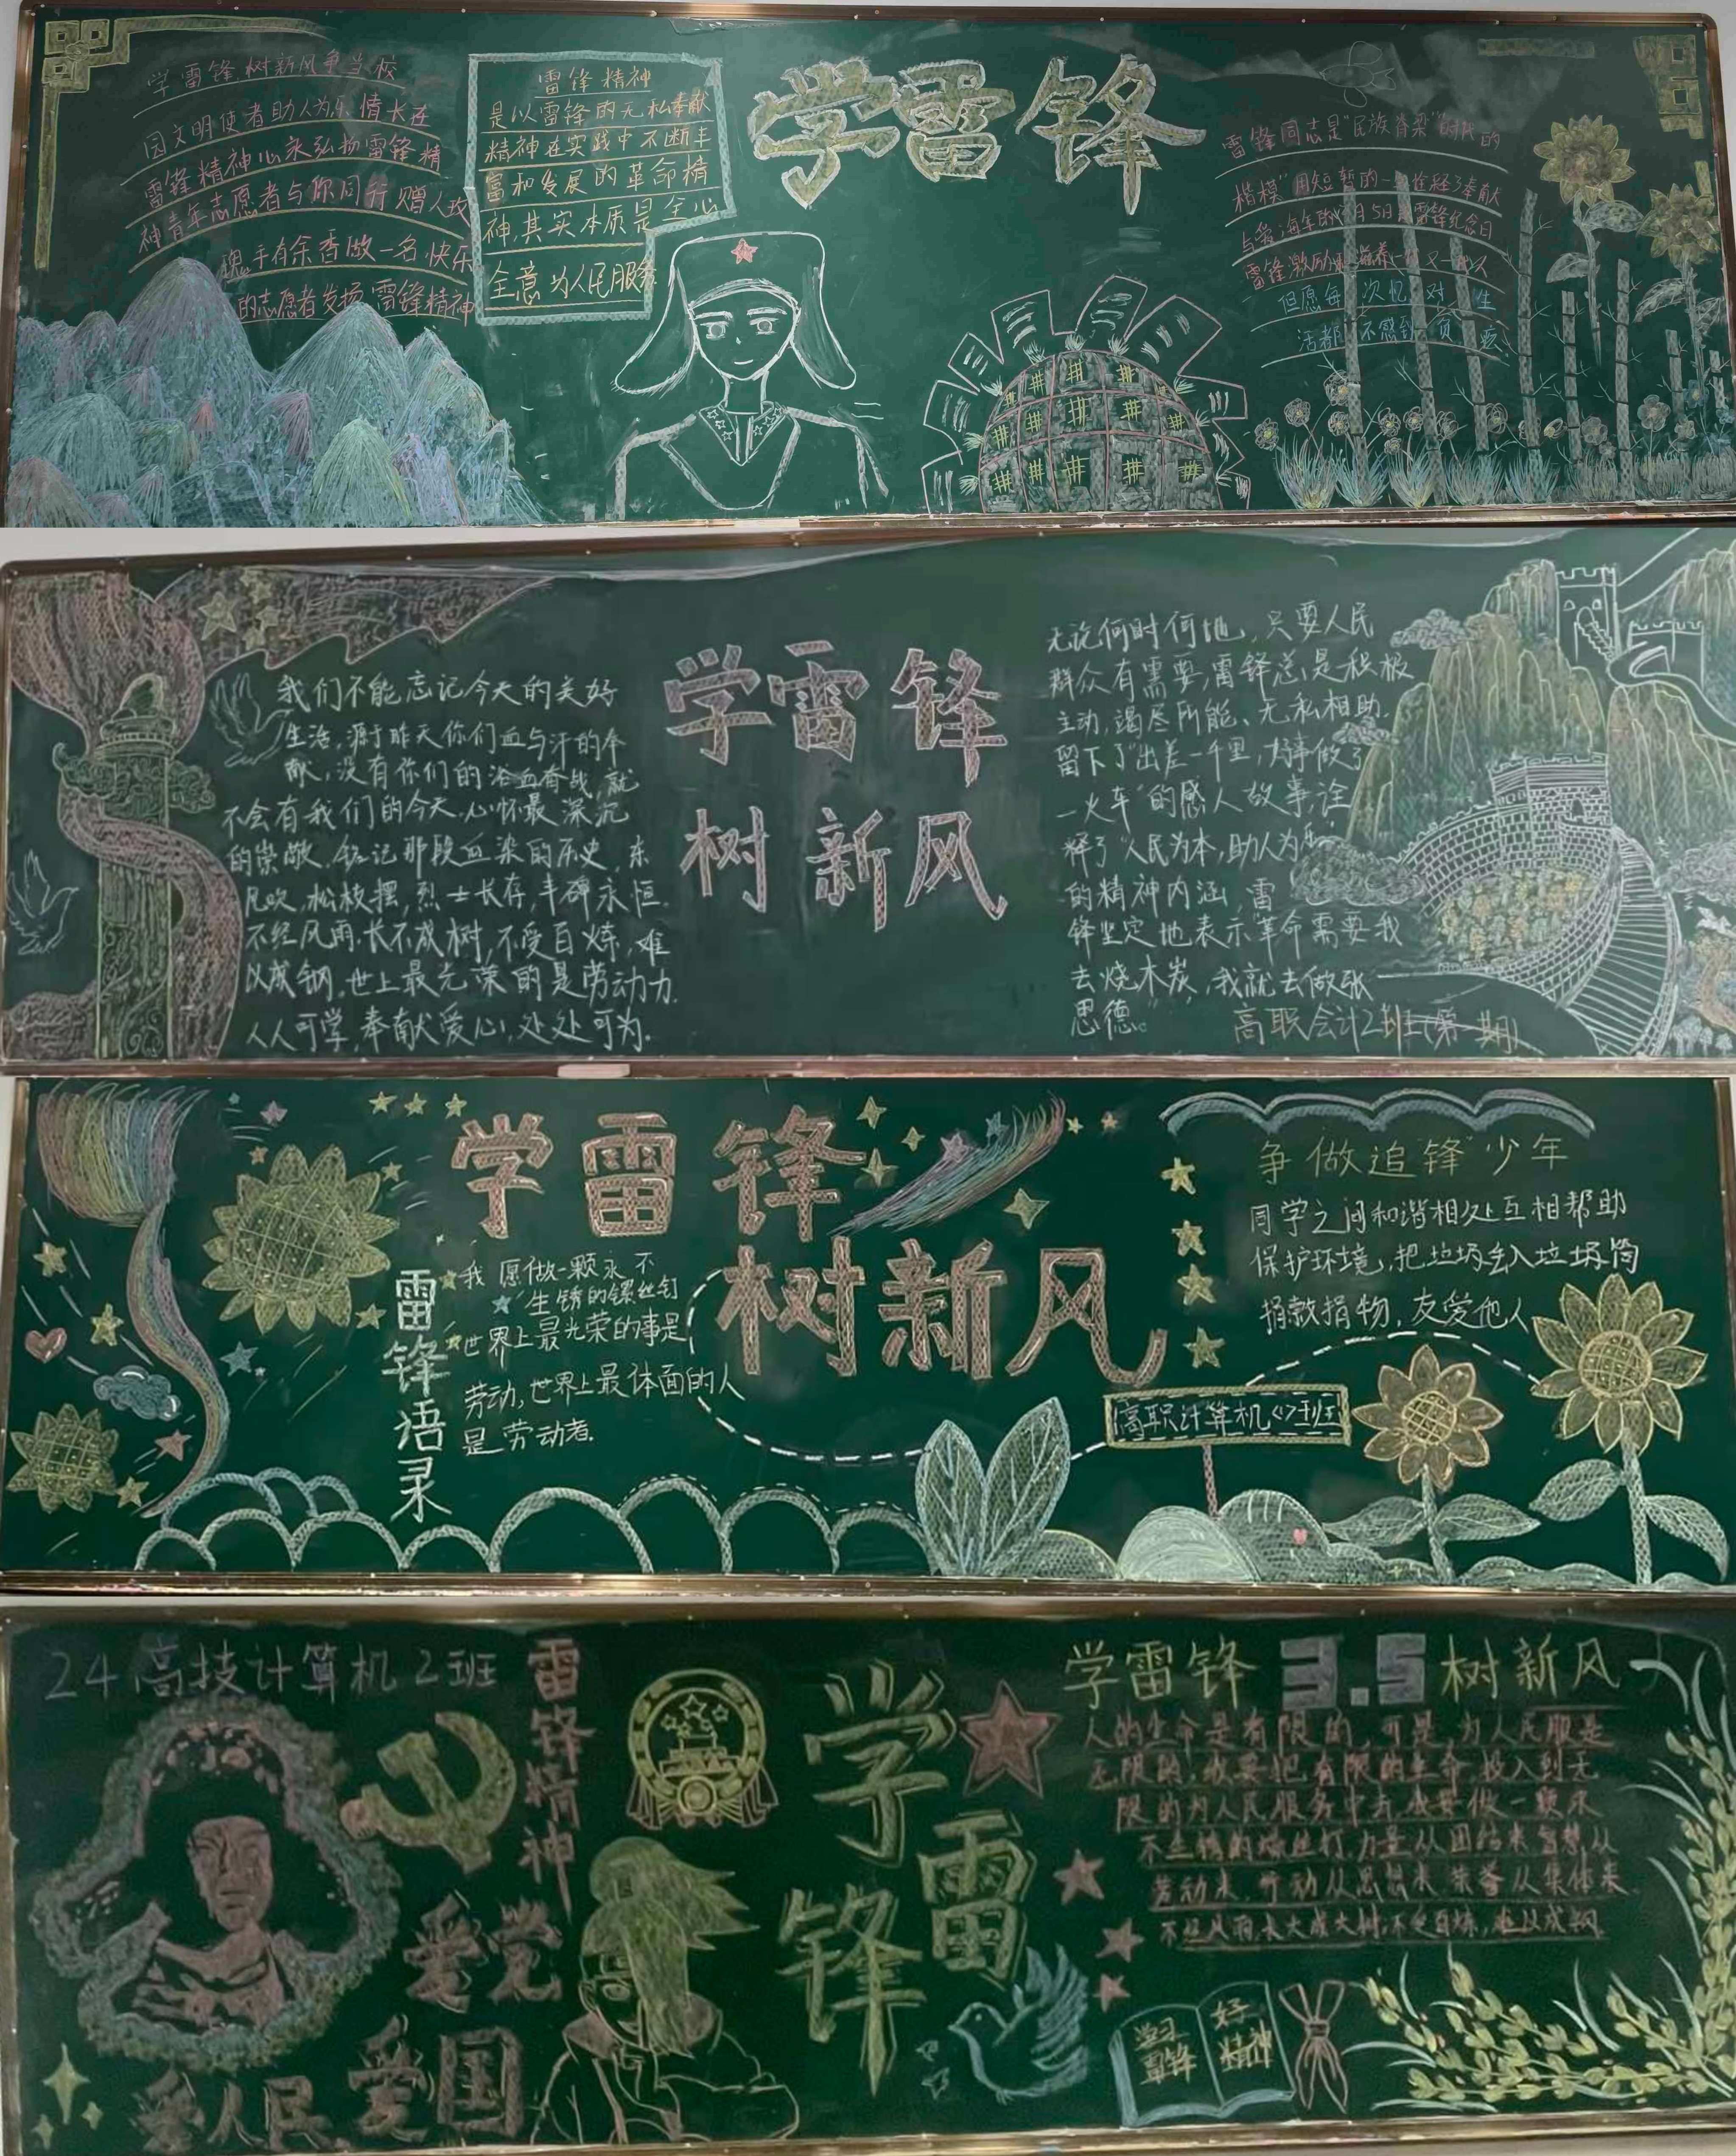 学雷锋树新风争当校
园文明使者助人为乐情长在
雷锋精神心永弘扬雷锋精
神青年志愿者与你同行赠人玫
瑰手有余香做一名快乐
的志愿者发扬雷锋精神
雷锋精神
是以雷锋的无私奉献
精神在实践中不断丰
富和发展的革命精
神,其实本质是全心
全意为人民服务
学雷锋
雷锋同志是“民族脊梁”时代的
楷模”用短暂的一
与爱 每年的3月5日是雷锋纪念日
雷锋激励
但愿每 次忆 对 生
活都 不感到 负
我们不能忘记今天的美好
生活,源于昨天你们血与汗的奉
献,没有你们的浴血奋战,就
不会有我们的今天.心怀最深沉
的崇敬.铭记那段血染的历史,东
风吹,松枝摆,烈士长存,丰碑永恒.
不经风雨.长不成树,不受百炼,难
以成钢.世上最光荣的是劳动力.
人人可学,奉献爱心,处处可为.
学雷锋
树新风
无论何时何地,只要人民
群众有需要,雷锋总是积极
主动,竭尽所能、无私相助.
留下了“出差一千里,好事做了
一火车”的感人故事,诠
释了“人民为本,助人为乐
的精神内涵,雷
锋坚定地表示“革命需要我
去烧木炭,我就去做张
思德。”
高职会计2班(第一期)
学雷锋
树新风
雷锋语录
我愿做一颗永不
生锈的镙丝钉
世界上最光荣的事是
劳动,世界上最体面的人
是劳动者.
争做“追锋”少年
同学之间和谐相处互相帮助
保护环境,把垃圾丢入垃圾筒
捐款捐物,友爱他人
高职计算机<1>班
24高技计算机2班
雷锋精神
爱党
爱国
爱人民
学雷锋
学雷锋 3.5 树新风
人的生命是有限的,可是,为人民服是
无限的,我要把有限的生命,投入到无
限的为人民服务中去,我要做一颗永
不生锈的螺丝钉,力量从团结来智慧从
劳动来,行动从思想来 荣誉从集体来
不经风雨,长大成大树,不受百炼,难以成钢
学习雷锋
好精神